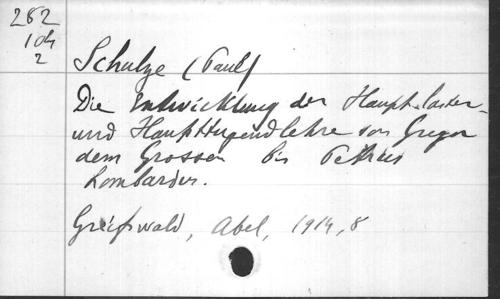 282
104
2
Schulze (Paul)
Die Entwicklung der Hauptlaster-
und Haupttugendlehre von Gregor
dem Grossen bis Petrus
Lombardus.
Greifswald, Abel, 1914, 8